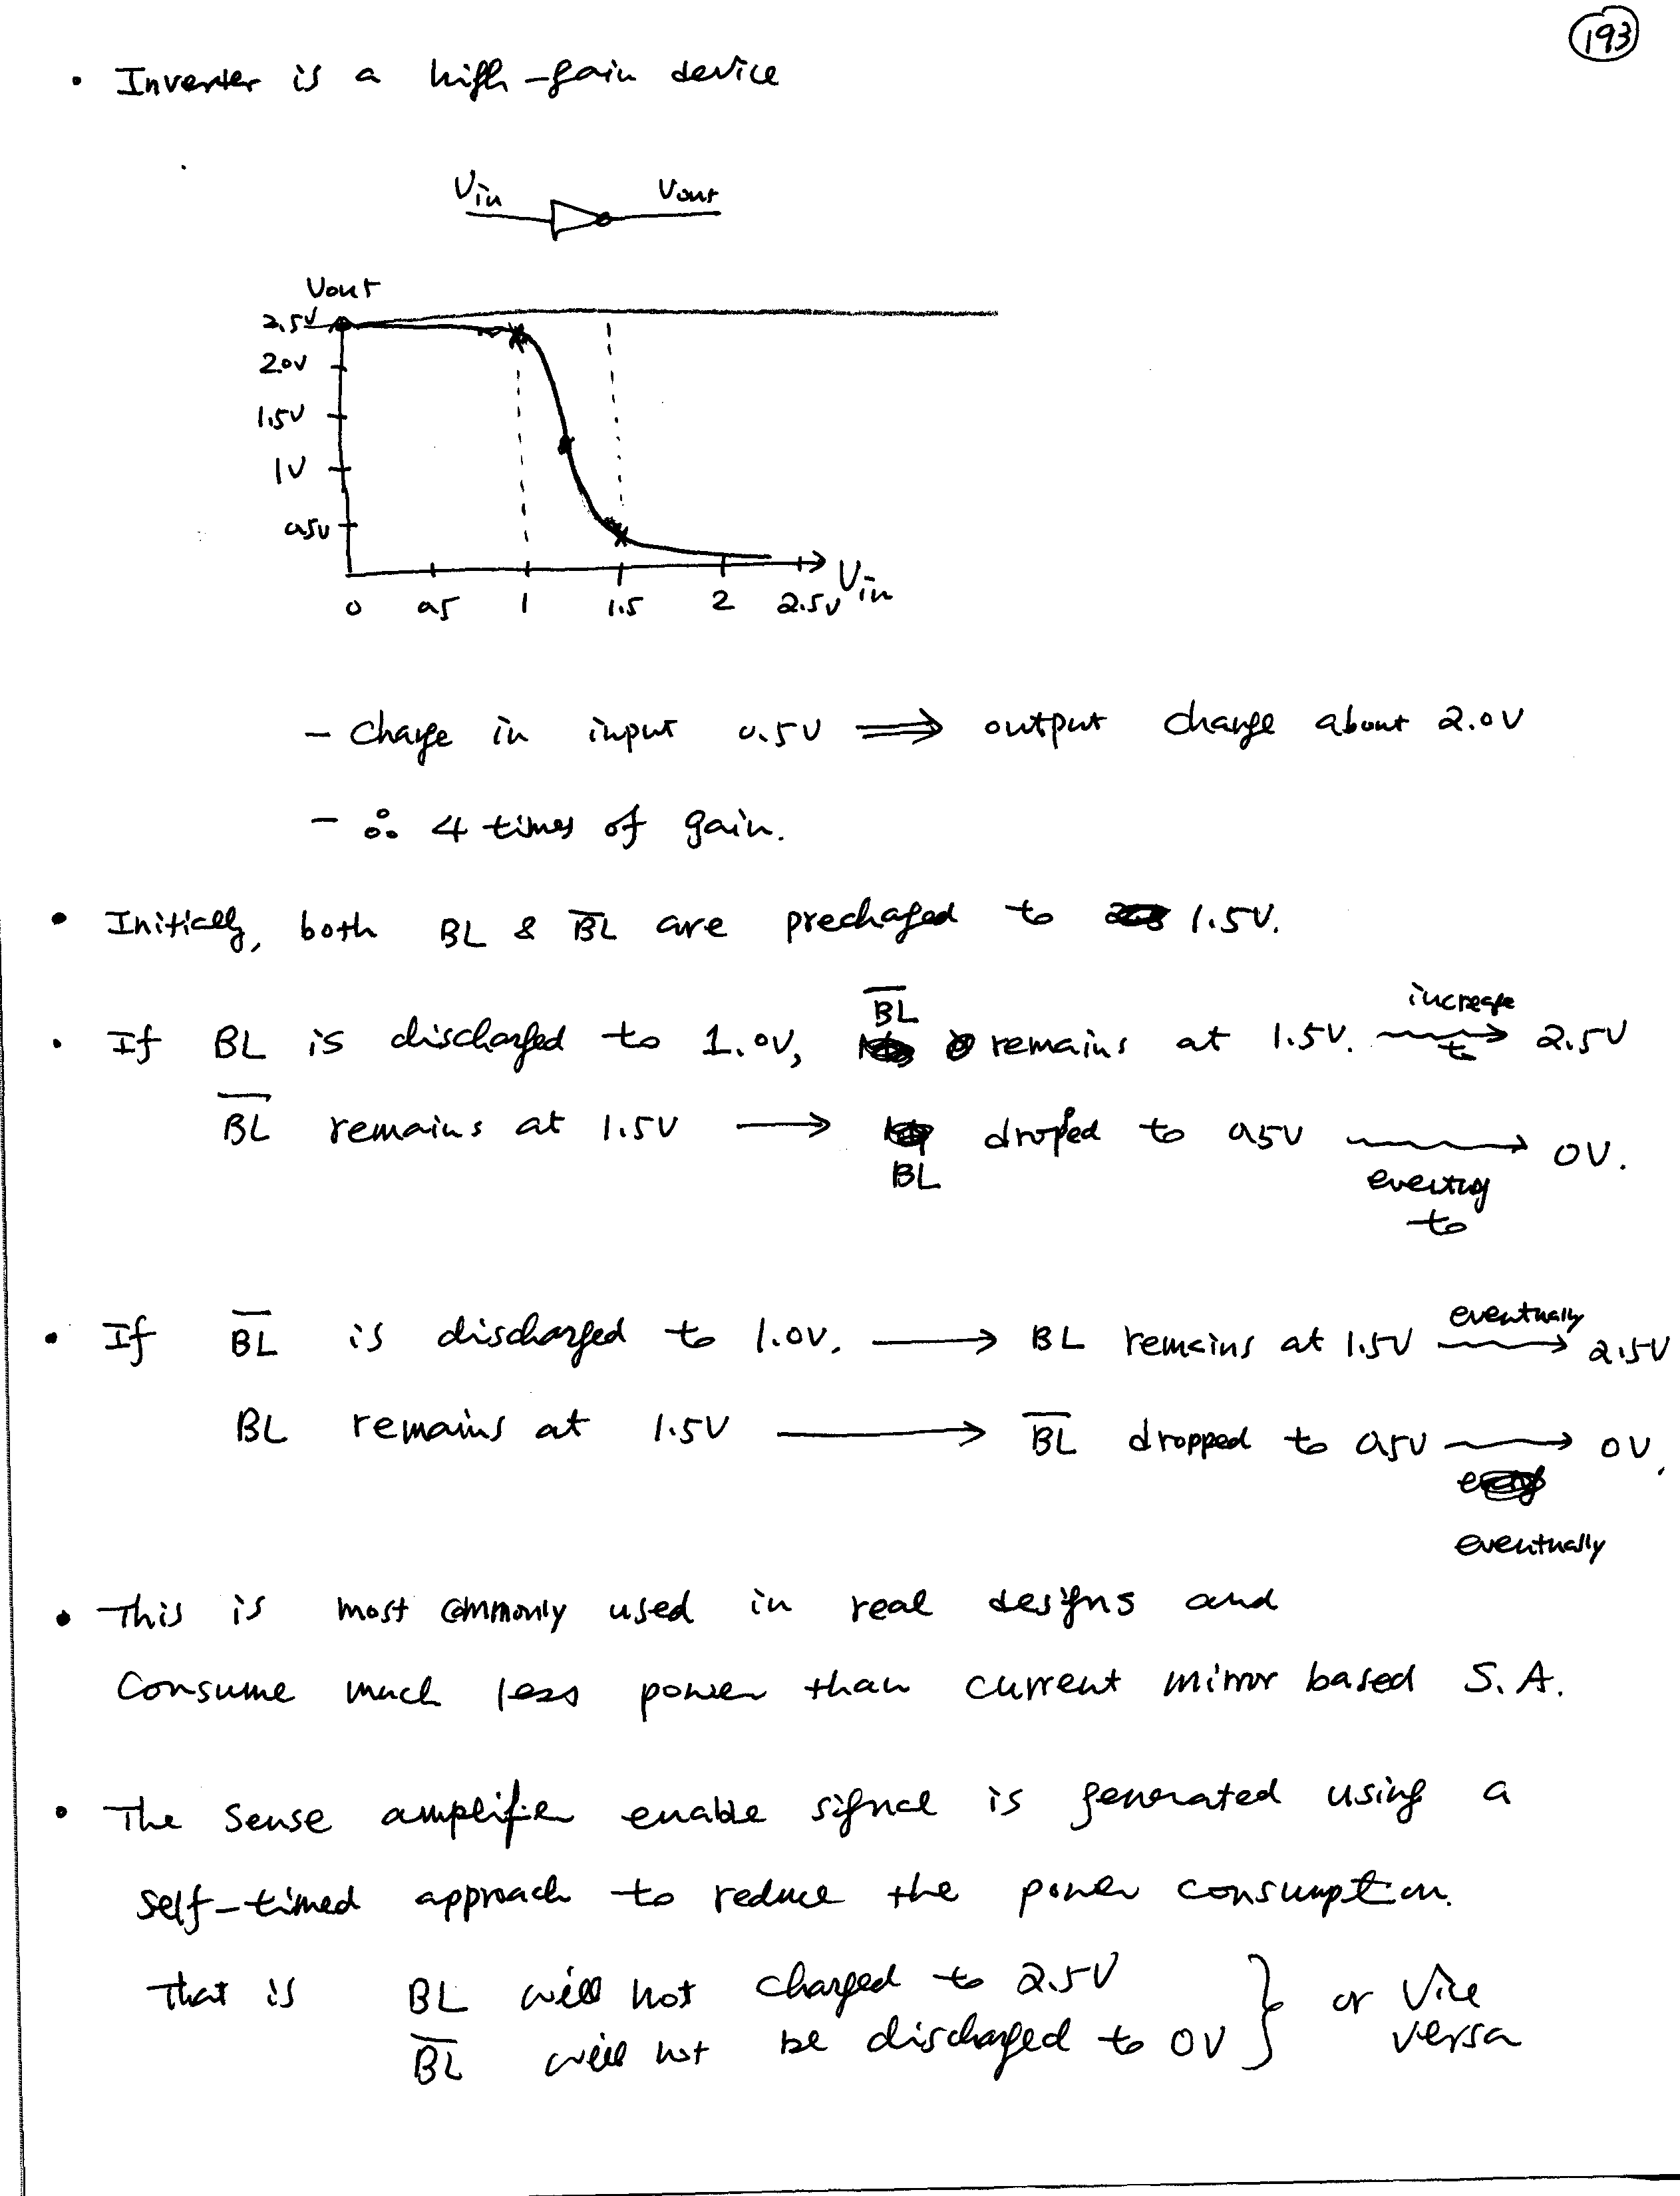 193
• Inverter is a high-gain device
Vin Vout
Vout
2.5V
2.0V
1.5V
1V
0.5V
0 0.5 1 1.5 2 2.5V Vin
- Change in input 0.5V ⟹ output change about 2.0V
- ∴ 4 times of gain.
• Initially, both BL & B̅L̅ are precharged to 1.5V.
• If BL is discharged to 1.0V, B̅L̅ remains at 1.5V. increase to → 2.5V
B̅L̅ remains at 1.5V → BL droped to 0.5V → 0V.
to
• If B̅L̅ is discharged to 1.0V. → BL remains at 1.5V eventually → 2.5V
BL remains at 1.5V → B̅L̅ dropped to 0.5V → 0V.
eventually
• This is most commonly used in real designs and
Consume much less power than current mirror based S.A.
• The sense amplifier enable signal is generated using a
self-timed approach to reduce the power consumption.
That is BL will not charged to 2.5V
B̅L̅ will not be discharged to 0V } or vice versa